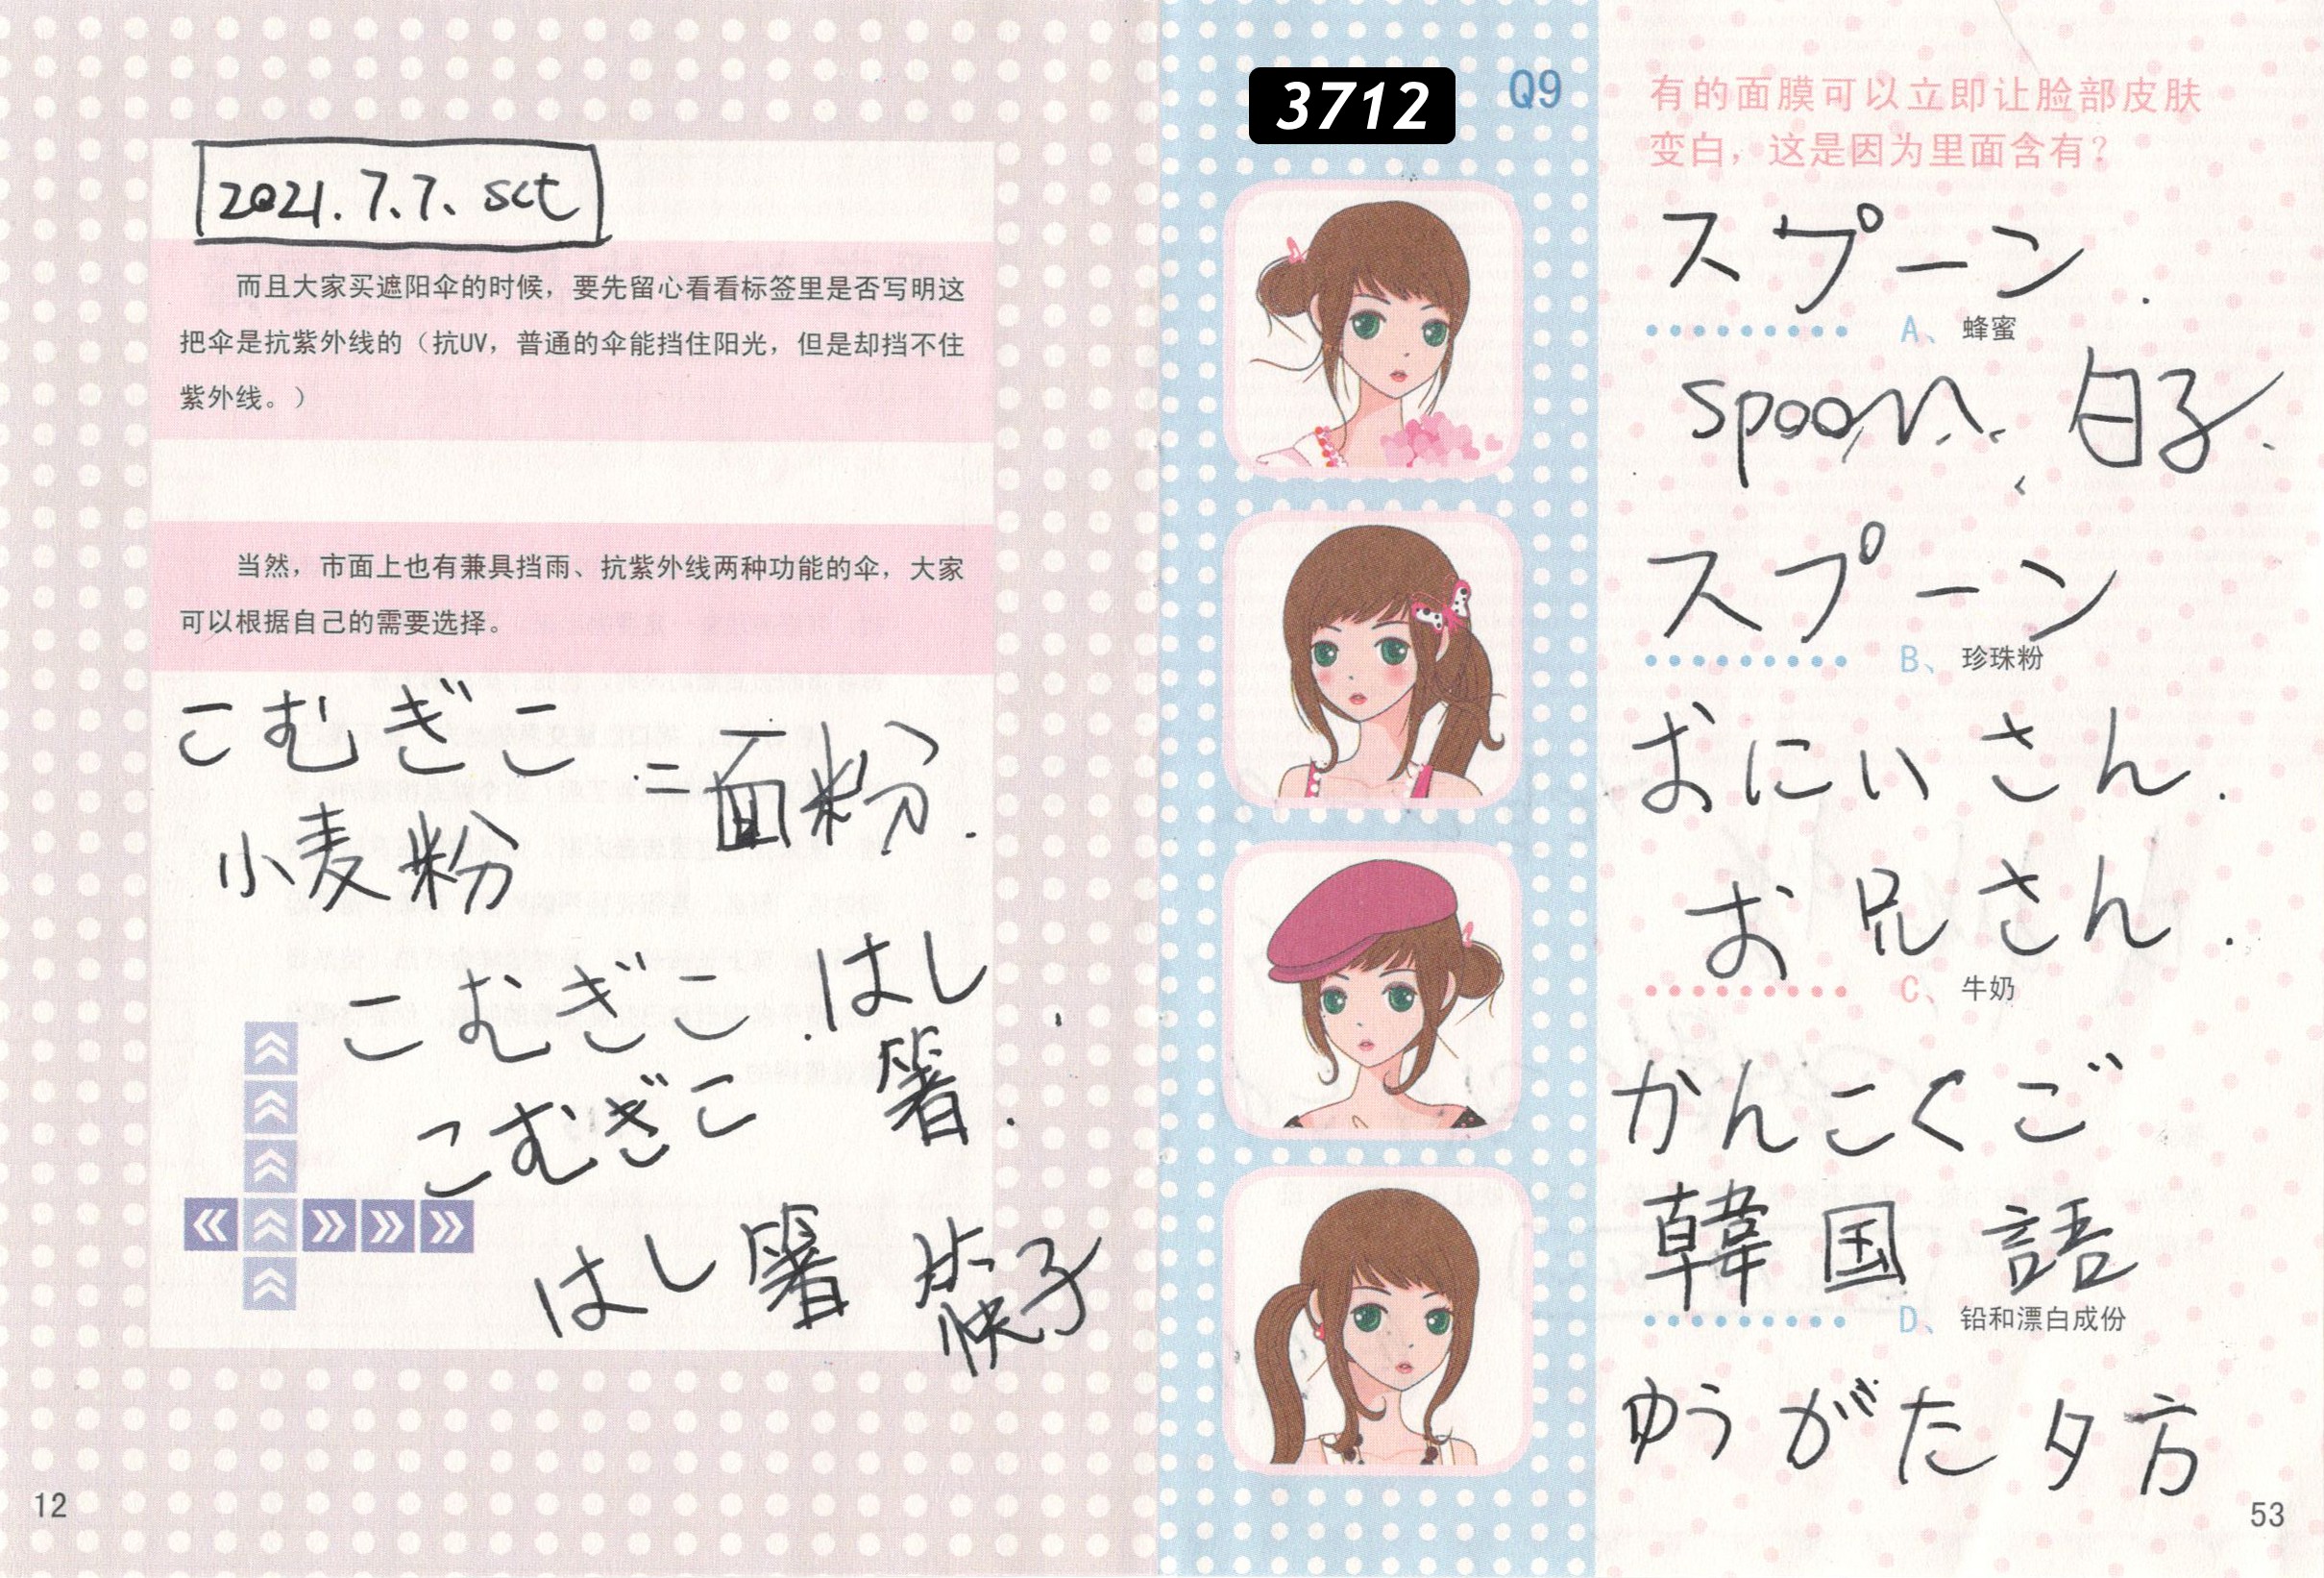 2021.7.7. sct
而且大家买遮阳伞的时候，要先留心看看标签里是否写明这
把伞是抗紫外线的（抗UV，普通的伞能挡住阳光，但是却挡不住
紫外线。）
当然，市面上也有兼具挡雨、抗紫外线两种功能的伞，大家
可以根据自己的需要选择。
こむぎこ
小麦粉
=面粉.
こむぎこ.
はし
箸.
こむぎこ
はし 箸
快子
12
3712
Q9
有的面膜可以立即让脸部皮肤
变白，这是因为里面含有？
スプーン.
A、 蜂蜜
spoon. 勺子.
スプーン
B、 珍珠粉
おにいさん.
お兄さん.
C、 牛奶
かんこくご
韓国語
D、 铅和漂白成份
ゆうがた 夕方
53